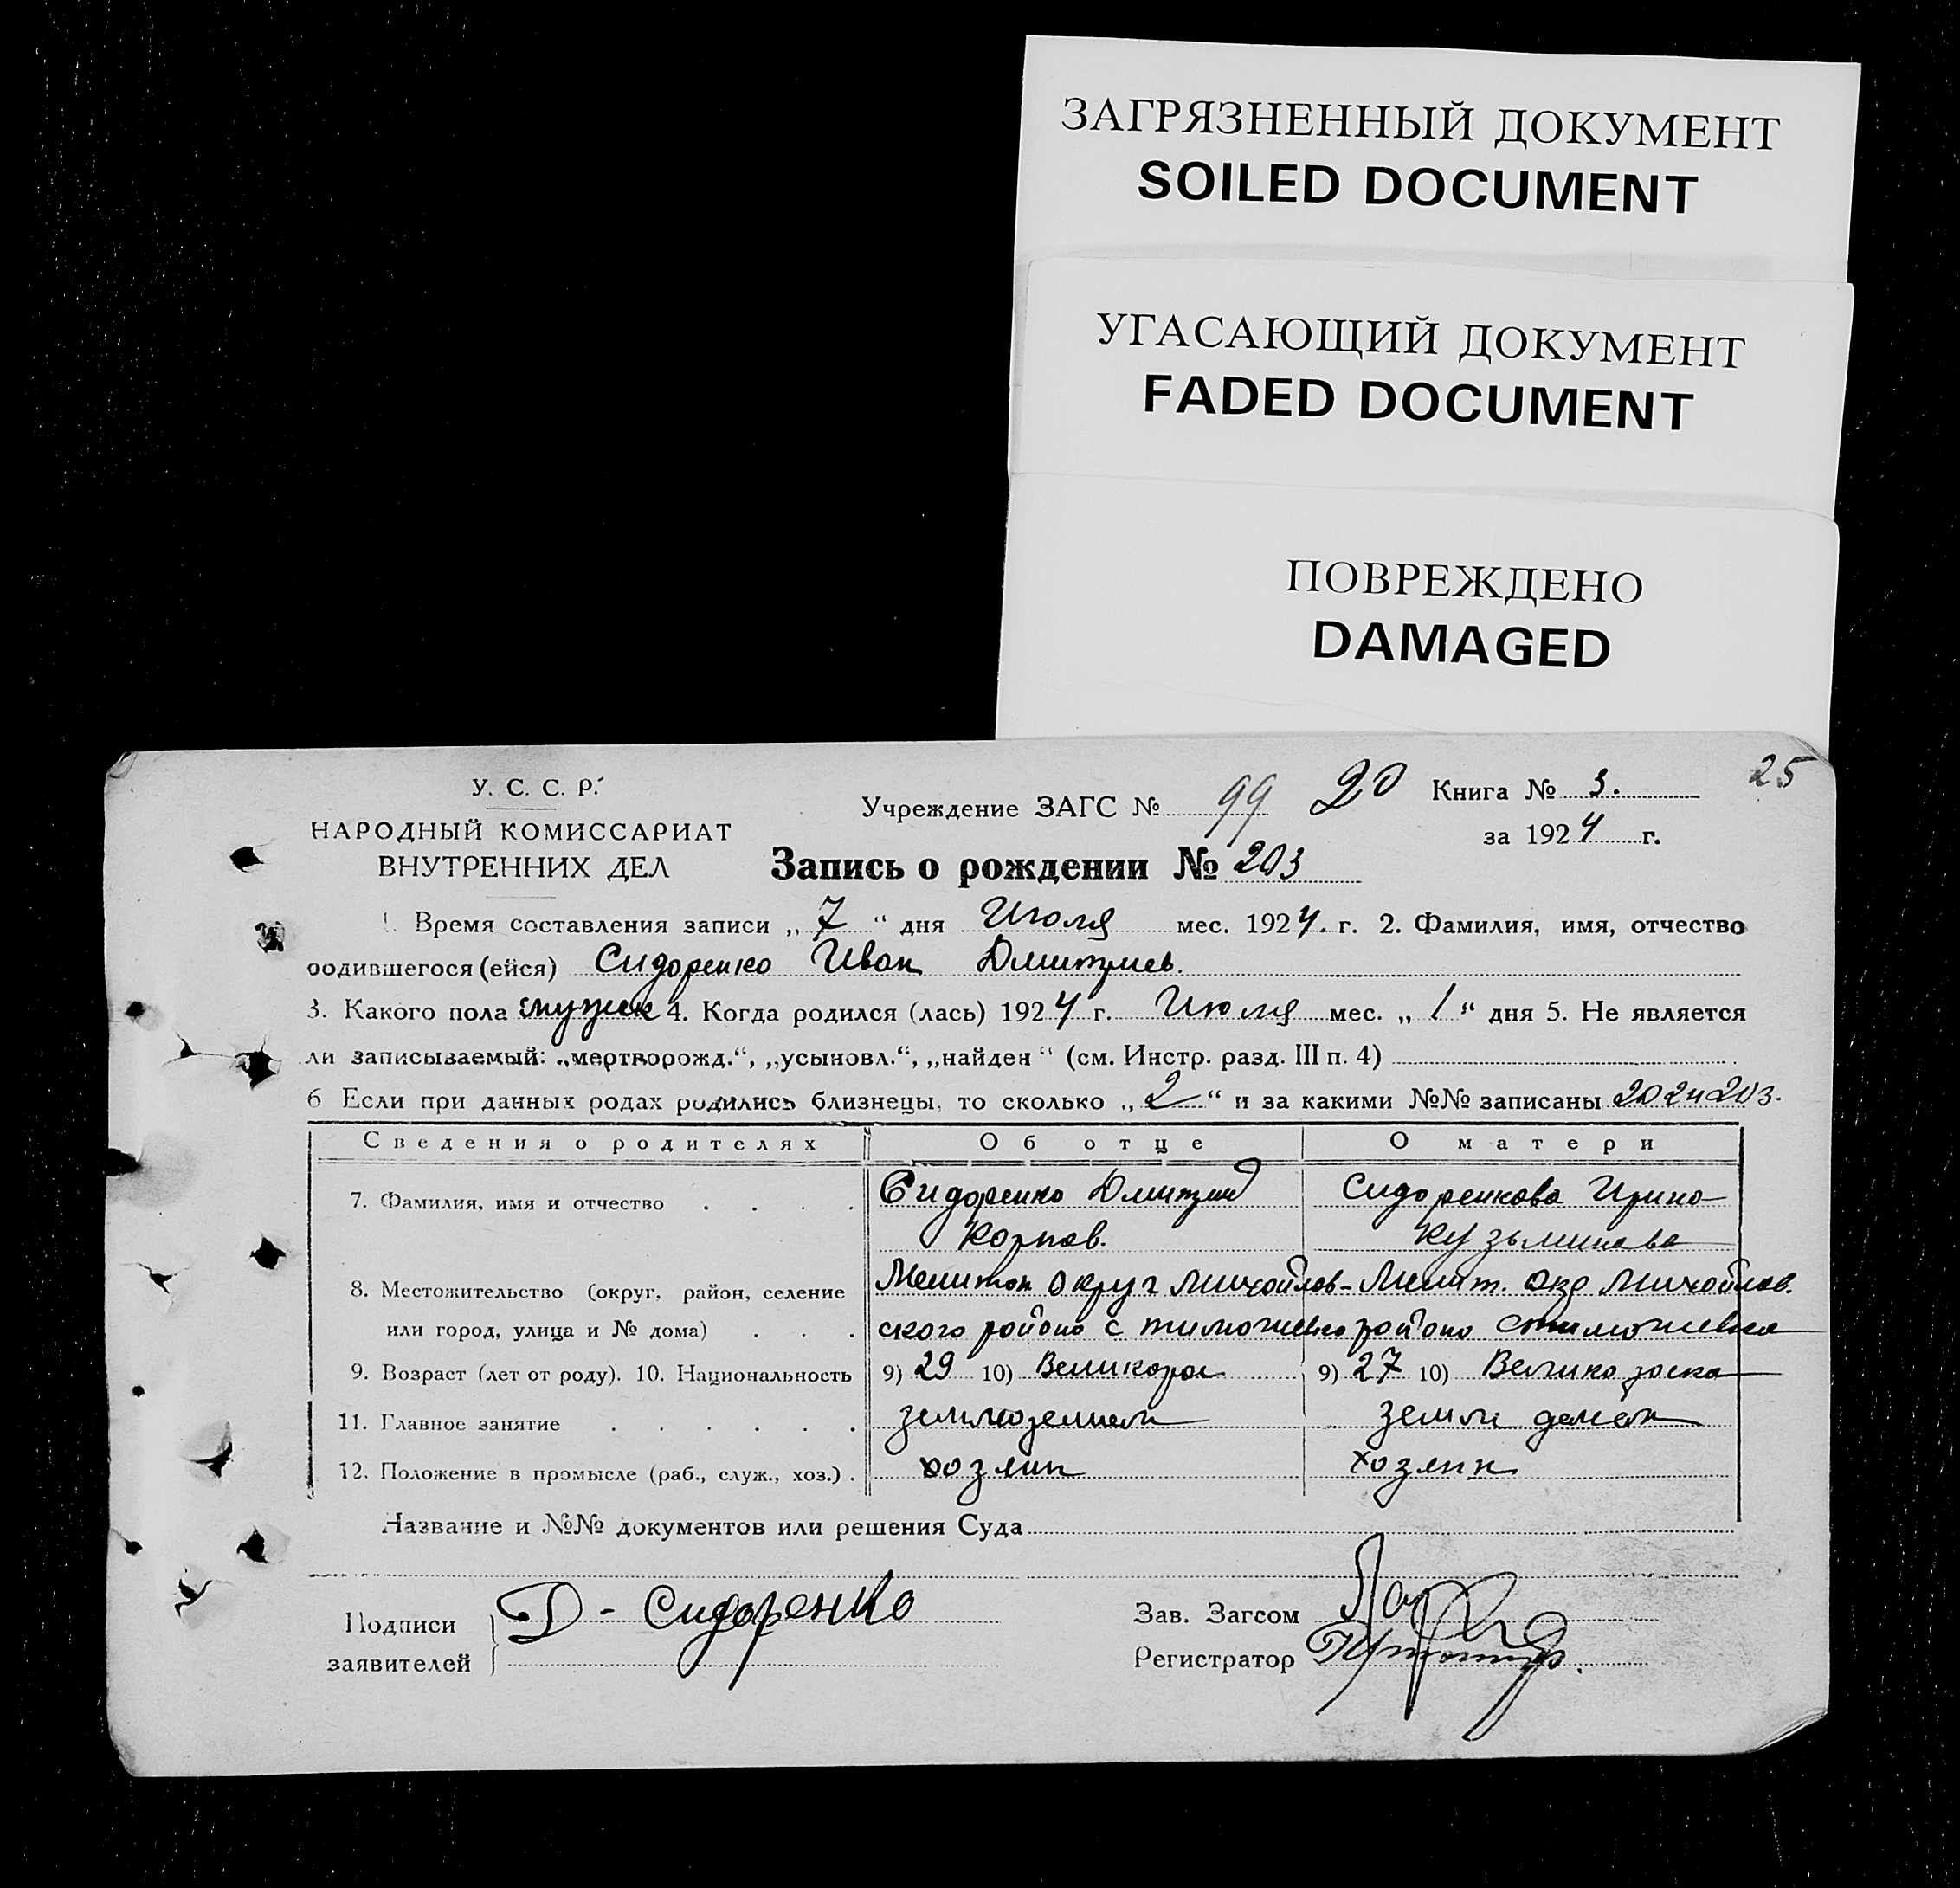 ЗАГРЯЗНЕННЫЙ ДОКУМЕНТ
SOILED DOCUMENT
УГАСАЮЩИЙ ДОКУМЕНТ
FADED DOCUMENT
ПОВРЕЖДЕНО
DAMAGED
25
У. С. С. Р.
Учреждение ЗАГС № 99 20 Книга № 3.
НАРОДНЫЙ КОМИССАРИАТ
за 1924 г.
ВНУТРЕННИХ ДЕЛ
Запись о рождении № 203
1. Время составления записи „7“ дня Июля мес. 1924. г. 2. Фамилия, имя, отчество
родившегося (ейся) Сидоренко Иван Дмитриев.
3. Какого пола мужск 4. Когда родился (лась) 1924 г. Июля мес. „1“ дня 5. Не является
ли записываемый: „мертворожд.“, „усыновл.“, „найден“ (см. Инстр. разд. III п. 4)
6 Если при данных родах родились близнецы, то сколько „2“ и за какими №№ записаны 202 и 203.
Сведения о родителях Об отце О матери
7. Фамилия, имя и отчество Сидоренко Дмитрий Сидоренкова Ирина
Корнев. Кузьминова
8. Местожительство (округ, район, селение Мелитоп округ Михайлов- Мелит. окр Михайлов.
или город, улица и № дома) ского района с тимошевка района с тимошевка
9. Возраст (лет от роду). 10. Национальность 9) 29 10) Великорос 9) 27 10) Великороска
11. Главное занятие
12. Положение в промысле (раб., служ., хоз.). хозяин хозяин
Название и №№ документов или решения Суда
Подписи Д - Сидоренко Зав. Загсом
заявителей Регистратор